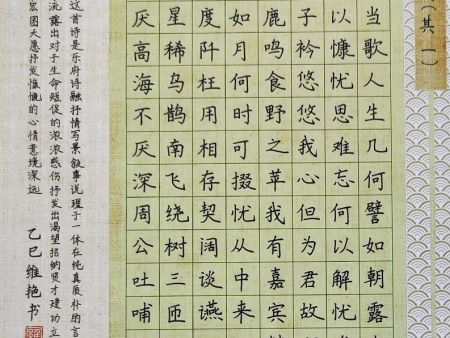 （其一）
当歌人生几何譬如朝露
以慷忧思难忘何以解忧
子衿悠悠我心但为君故
鹿鸣食野之苹我有嘉宾
如月何时可掇忧从中来
度阡枉用相存契阔谈䜩
星稀乌鹊南飞绕树三匝
厌高海不厌深周公吐哺
这首诗是乐府诗融抒情写景叙事说理于一体在纯真质朴的言
流露出对于生命短促的浓浓感伤抒发出渴望招纳贤才建功立
宏图大愿抒发慷慨的心情意境深远
乙巳维艳书